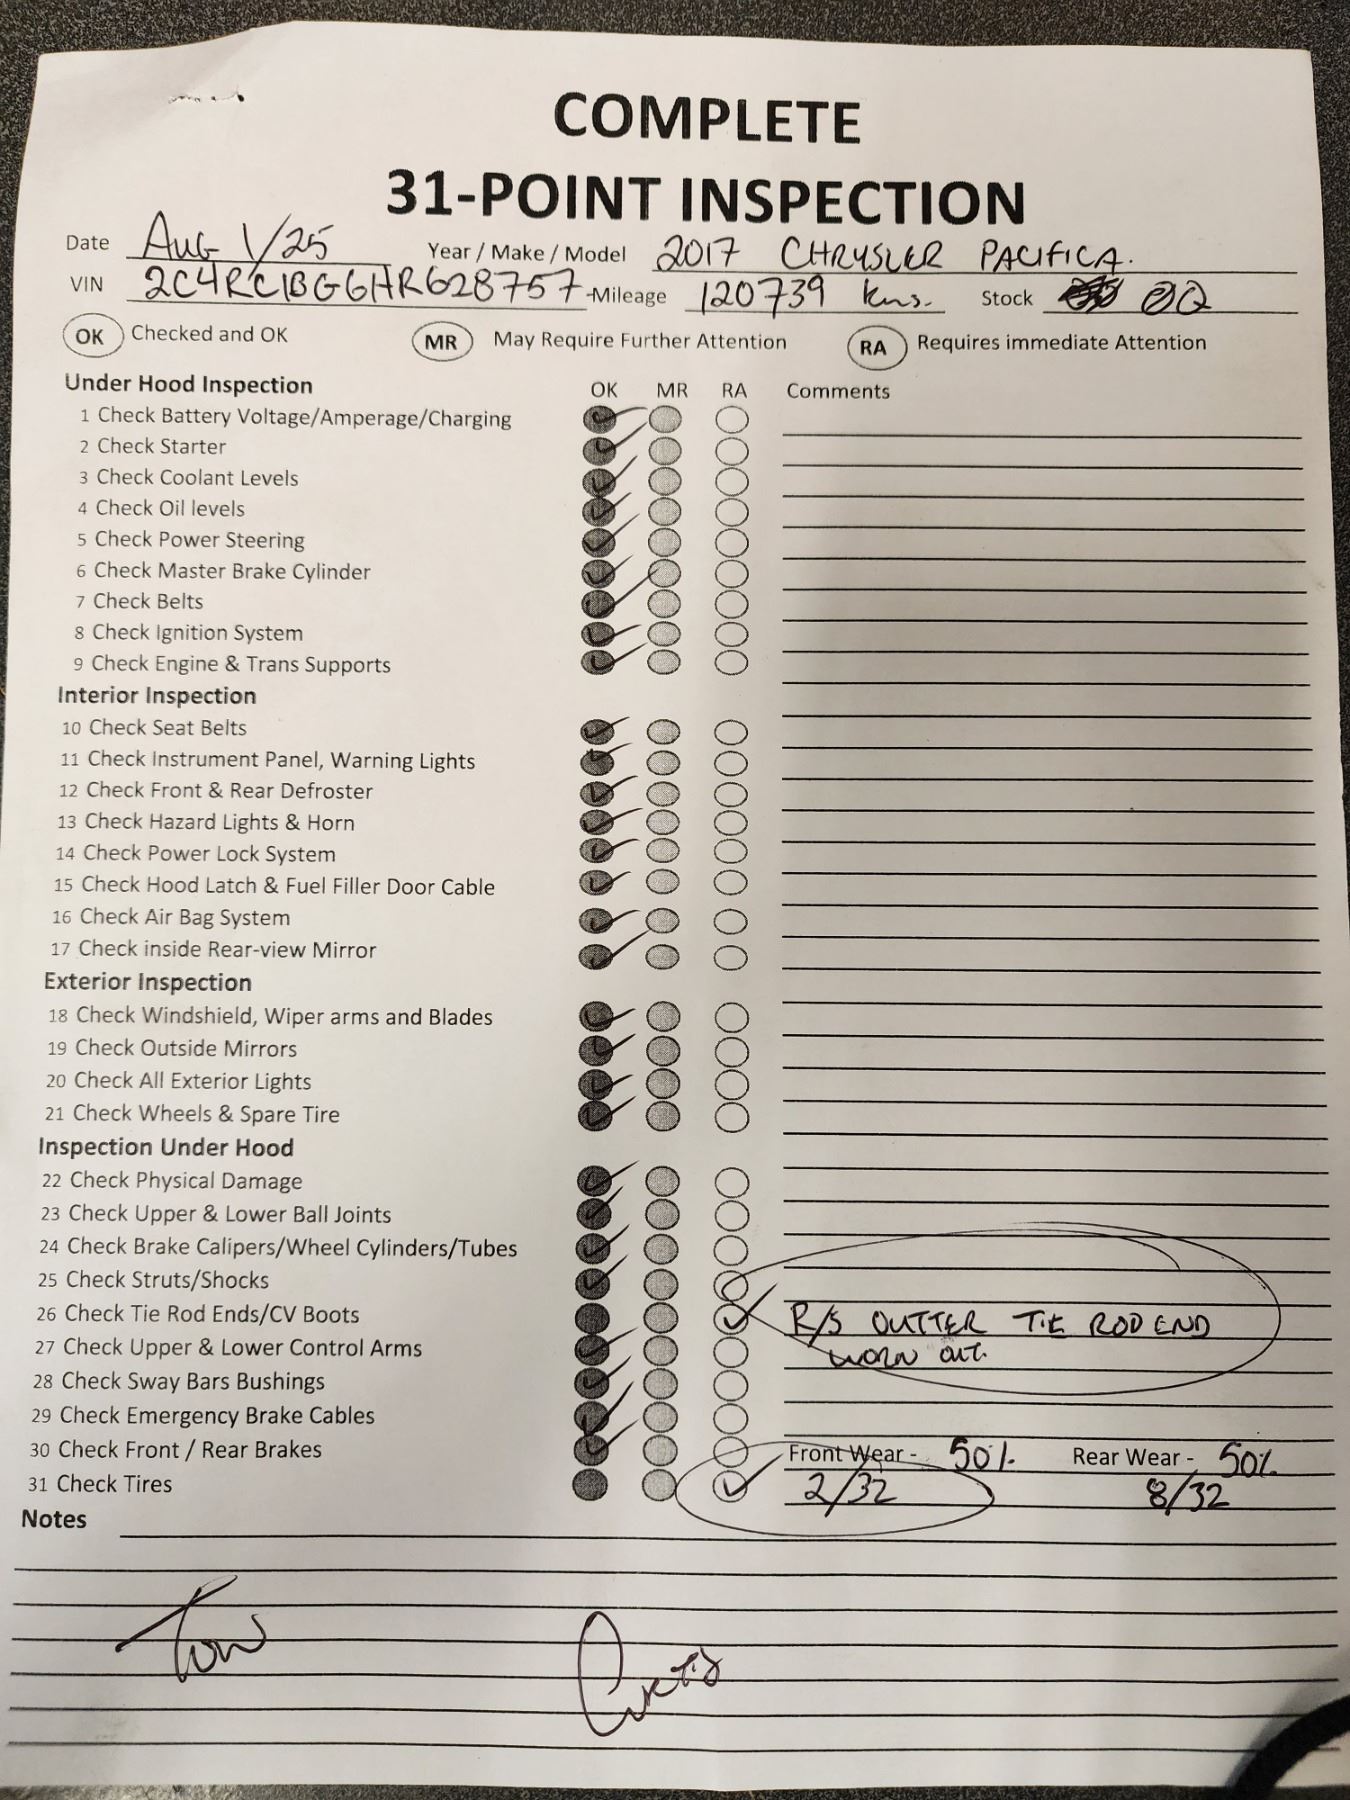 COMPLETE
31-POINT INSPECTION
Date Aug 1/25 Year / Make / Model 2017 CHRYSLER PACIFICA.
VIN 2C4RC1BGGHR628757 Mileage 120739 kms. Stock
OK Checked and OK MR May Require Further Attention RA Requires immediate Attention
Under Hood Inspection OK MR RA Comments
1 Check Battery Voltage/Amperage/Charging
2 Check Starter
3 Check Coolant Levels
4 Check Oil levels
5 Check Power Steering
6 Check Master Brake Cylinder
7 Check Belts
8 Check Ignition System
9 Check Engine & Trans Supports
Interior Inspection
10 Check Seat Belts
11 Check Instrument Panel, Warning Lights
12 Check Front & Rear Defroster
13 Check Hazard Lights & Horn
14 Check Power Lock System
15 Check Hood Latch & Fuel Filler Door Cable
16 Check Air Bag System
17 Check inside Rear-view Mirror
Exterior Inspection
18 Check Windshield, Wiper arms and Blades
19 Check Outside Mirrors
20 Check All Exterior Lights
21 Check Wheels & Spare Tire
Inspection Under Hood
22 Check Physical Damage
23 Check Upper & Lower Ball Joints
24 Check Brake Calipers/Wheel Cylinders/Tubes
25 Check Struts/Shocks
26 Check Tie Rod Ends/CV Boots R/S OUTTER TIE ROD END
27 Check Upper & Lower Control Arms WORN OUT.
28 Check Sway Bars Bushings
29 Check Emergency Brake Cables
30 Check Front / Rear Brakes Front Wear - 50% Rear Wear - 50%
31 Check Tires 2/32 8/32
Notes
Curtis